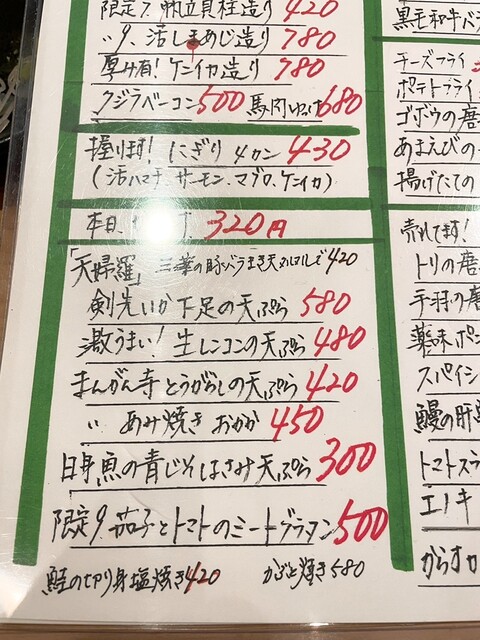 限定7. 帆立貝柱造り 420
〃 9. 活しまあじ造り 780
厚み有! ケンイカ造り 780
クジラベーコン 500 馬肉ゆっけ 680
握ります! にぎり 4カン 430
(活ハマチ、サーモン、マグロ、ケンイカ)
本日 320円
「天婦羅」三葉の豚バラまき天 420
剣先いか下足の天ぷら 580
激うまい! 生レンコンの天ぷら 480
まんがん寺とうがらしの天ぷら 420
〃 あみ焼き おかか 450
白身魚の青じそはさみ天ぷら 300
限定9. 茄子とトマトのミートグラタン 500
鮭の切り身塩焼き 420 かぶと焼き 580
黒毛和牛バラ
チーズフライ
ポテトフライ
ゴボウの唐
あまえびの
揚げたての
売れてます!
トリの唐
手羽の唐
薬味ポン
スパイシ
鰻の肝
トマトスラ
エノキ
からオカ